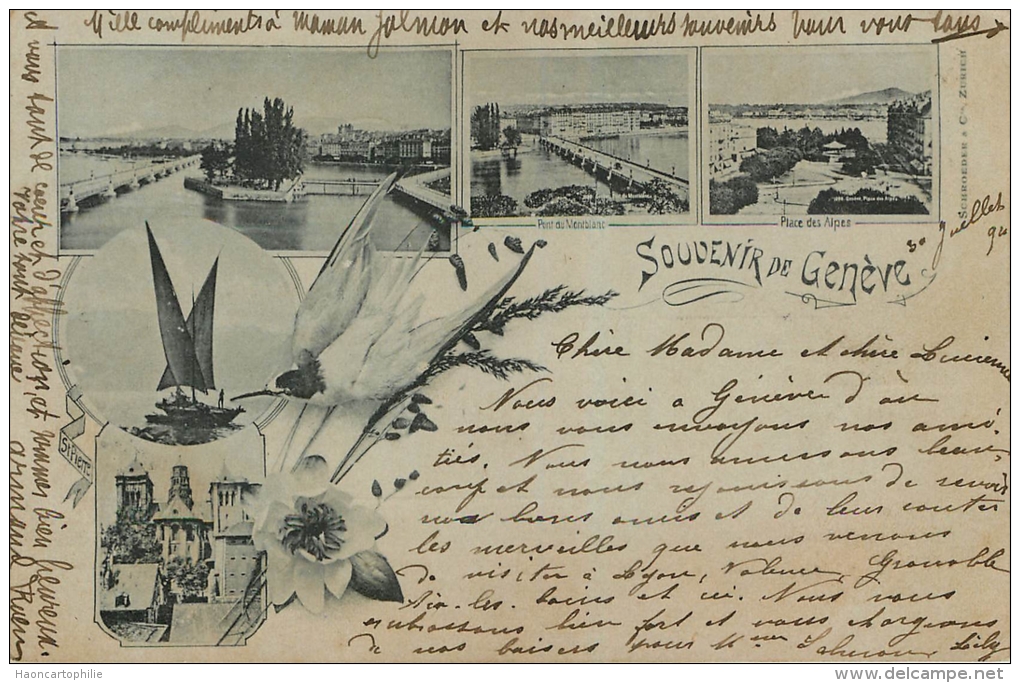 Mille compliments à Maman Salmon et nos meilleurs souvenirs pour vous tous
SCHROEDER & Cie, ZURICH
Pont du Montblanc
Place des Alpes
SOUVENIR DE GENÈVE
30 Juillet
Chère Madame et chère Lucienne
Nous voici a Génève d'où
nous vous envoyons nos ami-
tiés. Nous nous amusons beau-
coup et nous rejouissons de revoir
nos bons amis et de leur conter
les merveilles que nous venons
de visiter à Lyon, Valence, Grenoble
Aix-les-bains et ici. Nous vous
embrassons bien fort et vous chargeons
de nos baisers pour Mmes Lily
St Pierre
et vous tout de d'affection, et sommes bien heureux.
Votre tout dévoué Armand
Haoncartophilie
www.delcampe.net